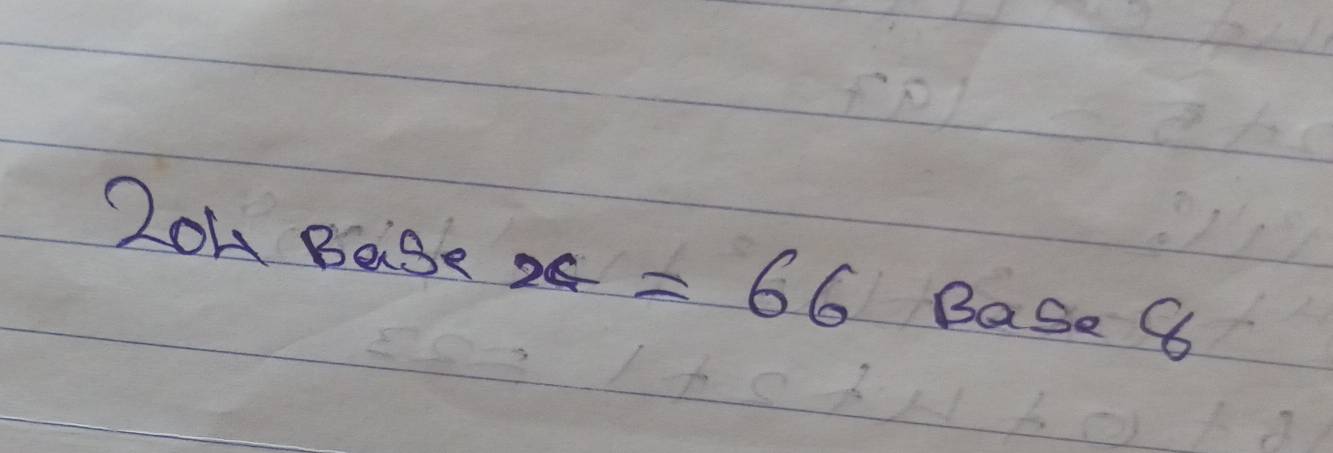 204 Base x = 66 Base 8